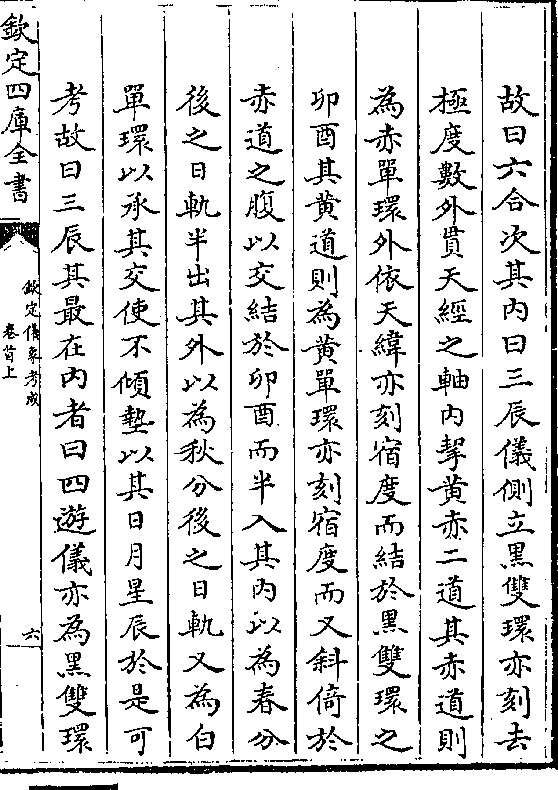 故曰六合次其内曰三辰儀側立黒雙環亦刻去
極度數外貫天經之軸内挈黄赤二道其赤道則
為赤單環外依天緯亦刻宿度而結於黒雙環之
卯酉其黄道則為黄單環亦刻宿度而又斜倚於
赤道之腹以交結於卯酉而半入其内以為春分
後之日軌半出其外以為秋分後之日軌又為白
單環以承其交使不傾墊以其日月星辰於是可
考故曰三辰其最在内者曰四遊儀亦為黒雙環
欽定四庫全書
欽定儀象考成
卷首上
六